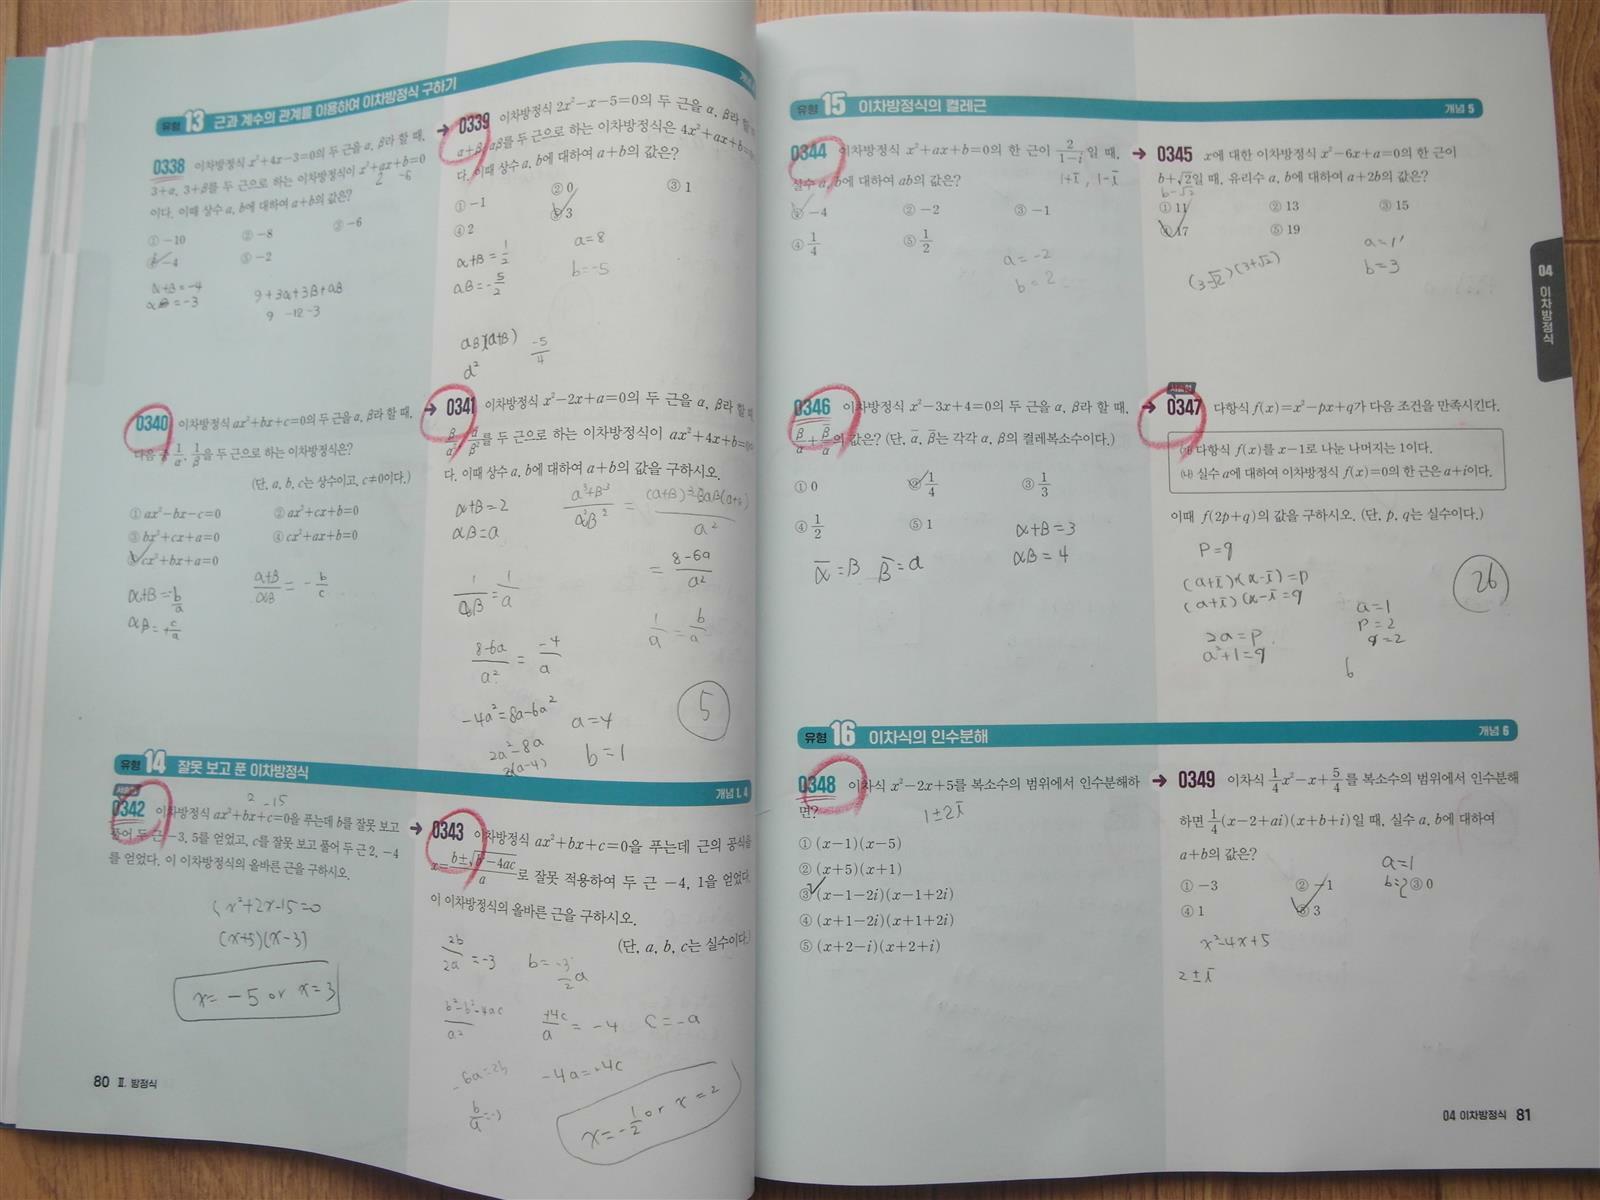 유형 13 근과 계수의 관계를 이용하여 이차방정식 구하기
0338 이차방정식 x²+4x-3=0의 두 근을 α, β라 할 때,
3+α, 3+β를 두 근으로 하는 이차방정식이 x²+ax+b=0
2 -6
이다. 이때 상수 a, b에 대하여 a+b의 값은?
① -10 ② -8 ③ -6
④ -4 ⑤ -2
α+β=-4
αβ=-3
9+3α+3β+αβ
9 -12 -3
→ 0339 이차방정식 2x²-x-5=0의 두 근을 α, β라 할
α+β, αβ를 두 근으로 하는 이차방정식은 4x²+ax+b=
다. 이때 상수 a, b에 대하여 a+b의 값은?
① -1 ② 0 ③ 1
④ 2 ⑤ 3
α+β=1/2
αβ=-5/2
a=8
b=-5
αβ(α+β)
-5/4
0340 이차방정식 ax²+bx+c=0의 두 근을 α, β라 할 때,
다음 중 1/α, 1/β을 두 근으로 하는 이차방정식은?
(단, a, b, c는 상수이고, c≠0이다.)
① ax²-bx-c=0 ② ax²+cx+b=0
③ bx²+cx+a=0 ④ cx²+ax+b=0
⑤ cx²+bx+a=0
α+β=-b/a
αβ=+c/a
α+β/αβ=-b/c
→ 0341 이차방정식 x²-2x+a=0의 두 근을 α, β라 할 때
를 두 근으로 하는 이차방정식이 ax²+4x+b=0
다. 이때 상수 a, b에 대하여 a+b의 값을 구하시오.
α+β=2
αβ=a
α³+β³/α²β²
=8-6a/a²
1/αβ=1/a
1/a=b/a
8-6a/a²=-4/a
-4a²=8a-6a²
2a²=8a
a=4
b=1
5
유형 14 잘못 보고 푼 이차방정식
개념 1, 4
2 -15
0342 이차방정식 ax²+bx+c=0을 푸는데 b를 잘못 보고
풀어 두 근 -3, 5를 얻었고, c를 잘못 보고 풀어 두 근 2, -4
를 얻었다. 이 이차방정식의 올바른 근을 구하시오.
x²+2x-15=0
(x+5)(x-3)
x=-5 or x=3
→ 0343 이차방정식 ax²+bx+c=0을 푸는데 근의 공식을
x=b±√b²-4ac/a로 잘못 적용하여 두 근 -4, 1을 얻었다.
이 이차방정식의 올바른 근을 구하시오.
(단, a, b, c는 실수이다.)
2b/2a=-3
b=-3/2a
b²-b²-4ac/a²
+4c/a=-4
c=-a
-4a=+4c
x=-1/2 or x=2
80 Ⅱ. 방정식
유형 15 이차방정식의 켤레근
개념 5
0344 이차방정식 x²+ax+b=0의 한 근이 2/1-i일 때,
1+i, 1-i
실수 a, b에 대하여 ab의 값은?
① -4 ② -2 ③ -1
④ 1/4 ⑤ 1/2
a=-2
b=2
→ 0345 x에 대한 이차방정식 x²-6x+a=0의 한 근이
b+√2일 때, 유리수 a, b에 대하여 a+2b의 값은?
b-√2
① 11 ② 13 ③ 15
④ 17 ⑤ 19
(3-√2)(3+√2)
b=3
0346 이차방정식 x²-3x+4=0의 두 근을 α, β라 할 때,
의 값은? (단, ᾱ, β̄는 각각 α, β의 켤레복소수이다.)
① 0 ② 1/4 ③ 1/3
④ 1/2 ⑤ 1
α+β=3
αβ=4
ᾱ=β β̄=α
서술형
→ 0347 다항식 f(x)=x²-px+q가 다음 조건을 만족시킨다.
(가) 다항식 f(x)를 x-1로 나눈 나머지는 1이다.
(나) 실수 a에 대하여 이차방정식 f(x)=0의 한 근은 a+i이다.
이때 f(2p+q)의 값을 구하시오. (단, p, q는 실수이다.)
P=q
(a+i)+(a-i)=p
(a+i)(a-i)=q
2a=p
a²+1=q
a=1
p=2
q=2
6
26
유형 16 이차식의 인수분해
개념 6
0348 이차식 x²-2x+5를 복소수의 범위에서 인수분해하
면?
1±2i
① (x-1)(x-5)
② (x+5)(x+1)
③ (x-1-2i)(x-1+2i)
④ (x+1-2i)(x+1+2i)
⑤ (x+2-i)(x+2+i)
→ 0349 이차식 1/4x²-x+5/4를 복소수의 범위에서 인수분해
하면 1/4(x-2+ai)(x+b+i)일 때, 실수 a, b에 대하여
a+b의 값은?
① -3 ② -1 ③ 0
④ 1 ⑤ 3
a=1
x²-4x+5
2±i
04 이차방정식
04 이차방정식 81